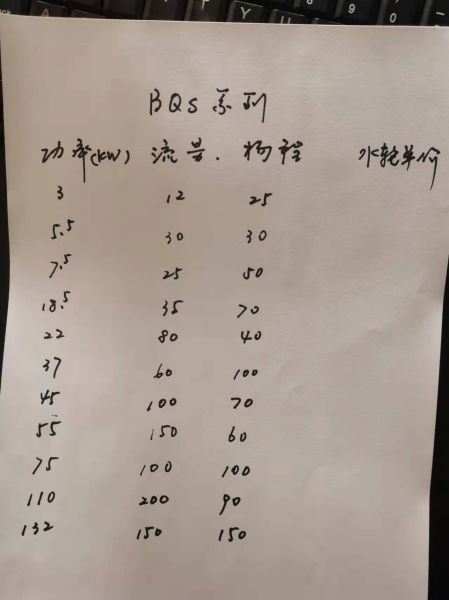 BQS 系列
功率(KW) 流量. 扬程 水轮单价
3 12 25
5.5 30 30
7.5 25 50
18.5 35 70
22 80 40
37 60 100
45 100 70
55 150 60
75 100 100
110 200 90
132 150 150